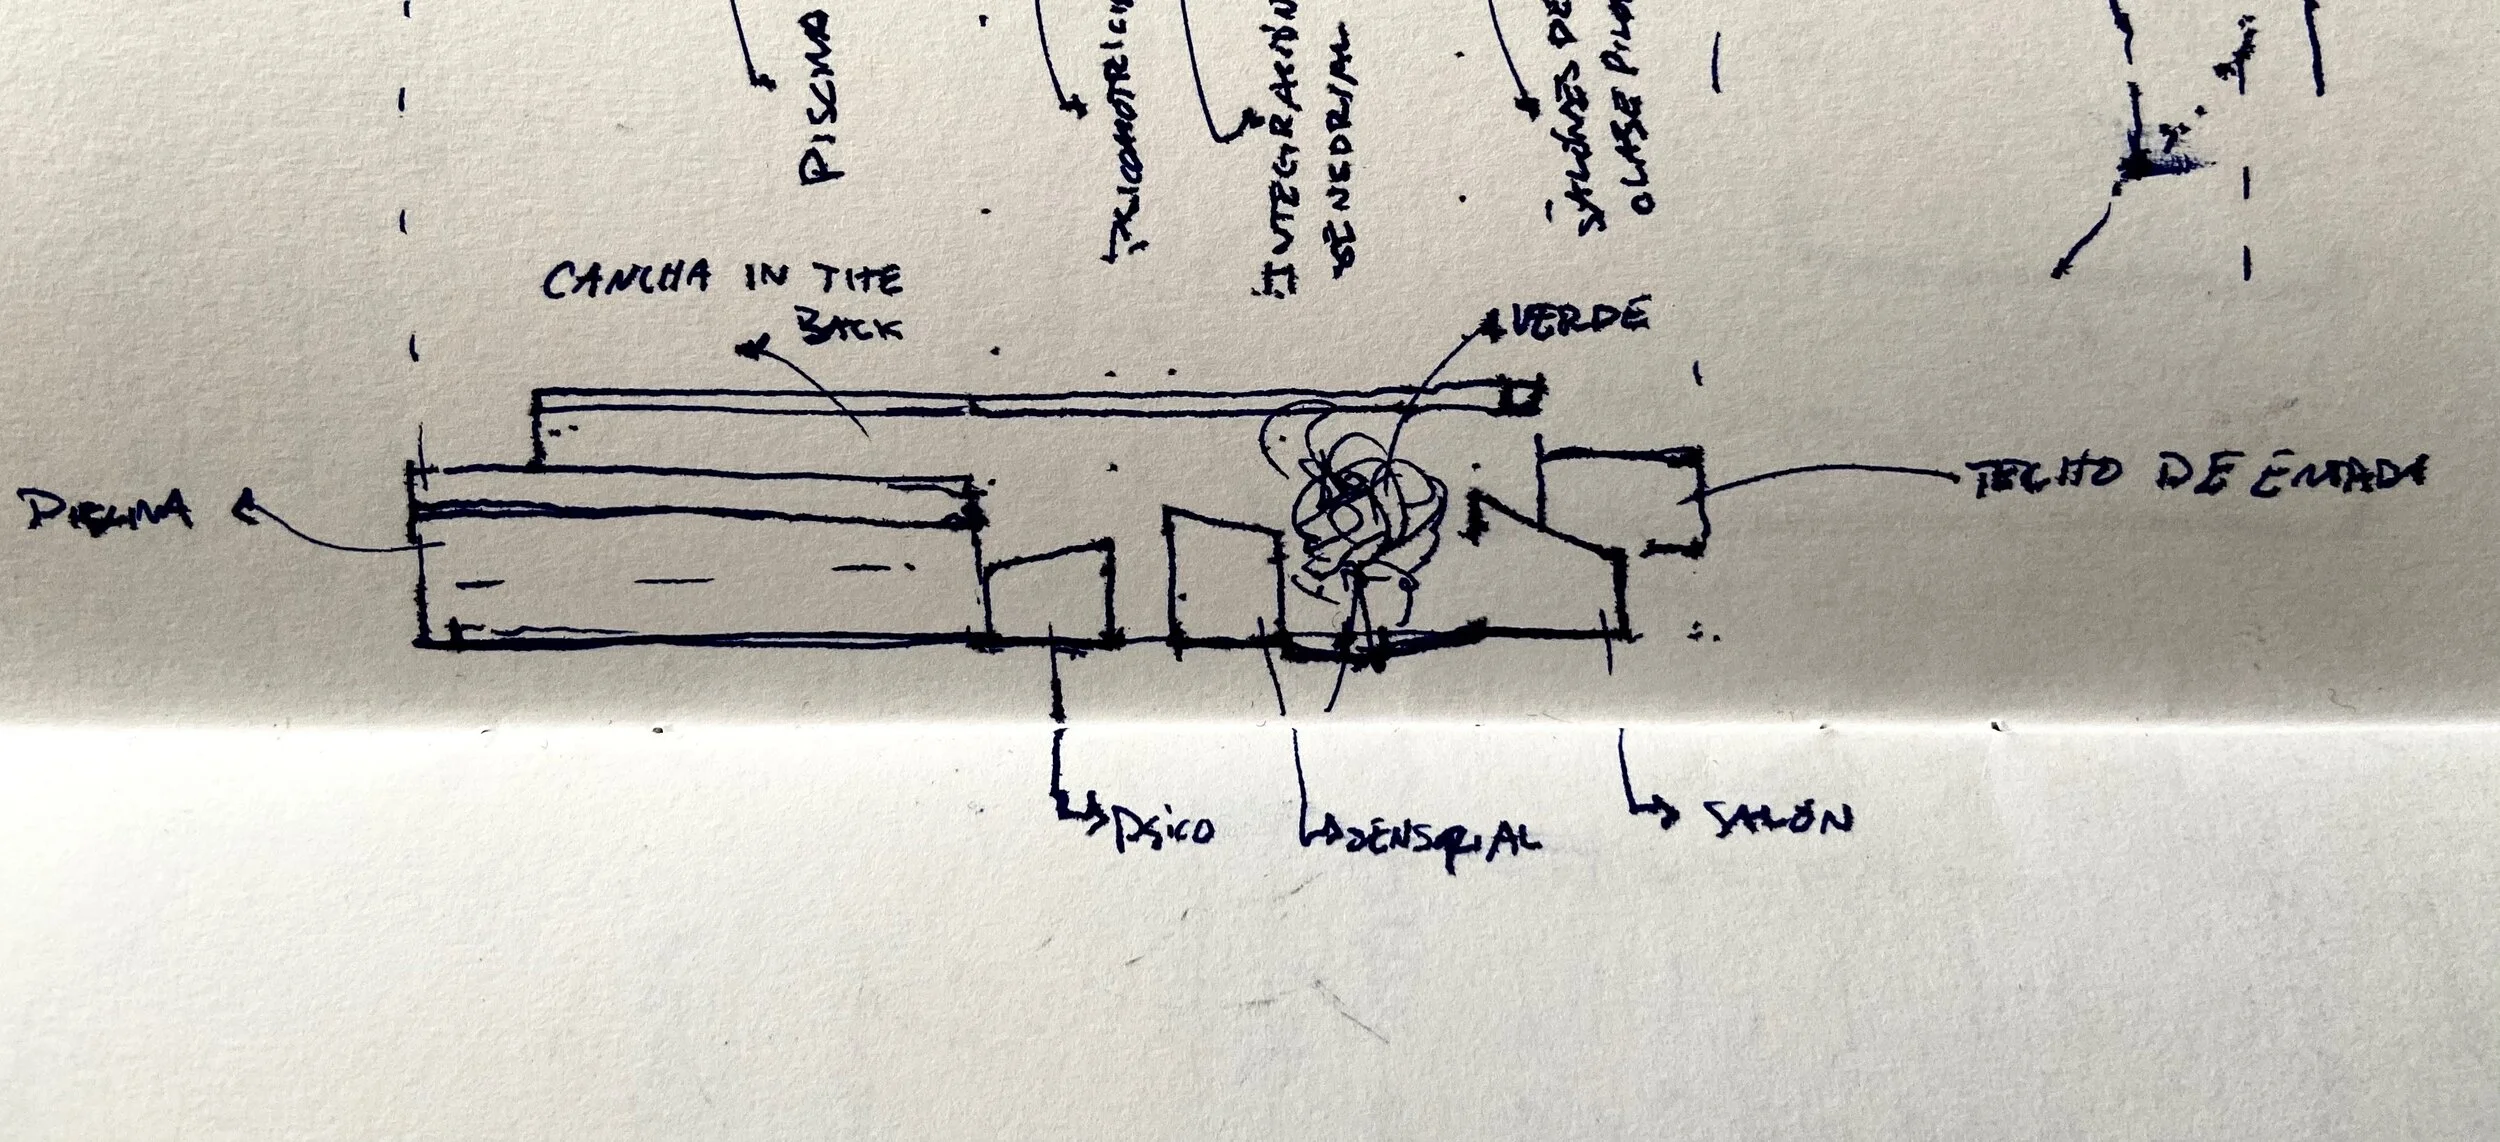 PISCINA
PSICOMOTRICI
INTEGRACIÓN
SENSORIAL
SALONES DE
CLASE PILO
CANCHA IN THE
BACK
VERDE
PISCINA
TECHO DE ENTADA
PSICO
SENSORIAL
SALÓN